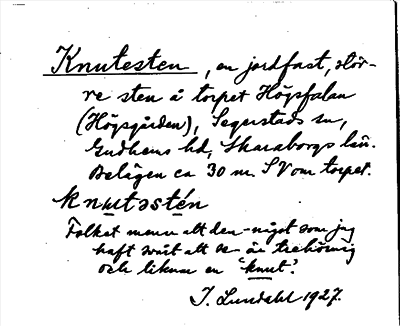 Knutesten, en jordfast, stör-
re sten å torpet Högsfalan
(Högsgården), Segerstads sn,
Gudhems hd, Skaraborgs län.
Belägen ca 30 m SV om torpet.
knutəstén
Folket menar att den - något som jag
haft svårt att se - är trehörnig
och liknar en "knut".
I. Lundahl 1927.